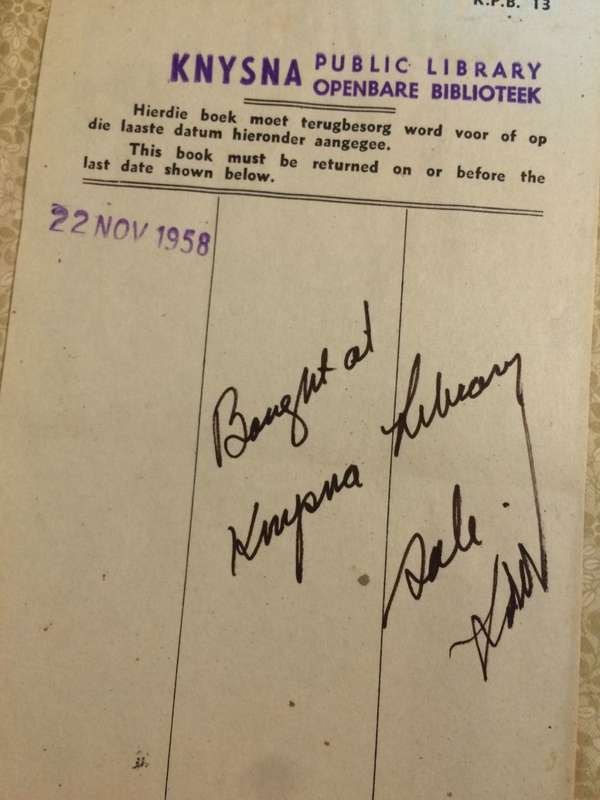 K.P.B. 13
KNYSNA PUBLIC LIBRARY
OPENBARE BIBLIOTEEK
Hierdie boek moet terugbesorg word voor of op
die laaste datum hieronder aangegee.
This book must be returned on or before the
last date shown below.
22 NOV 1958
Bought at
Knysna Library
Sale.